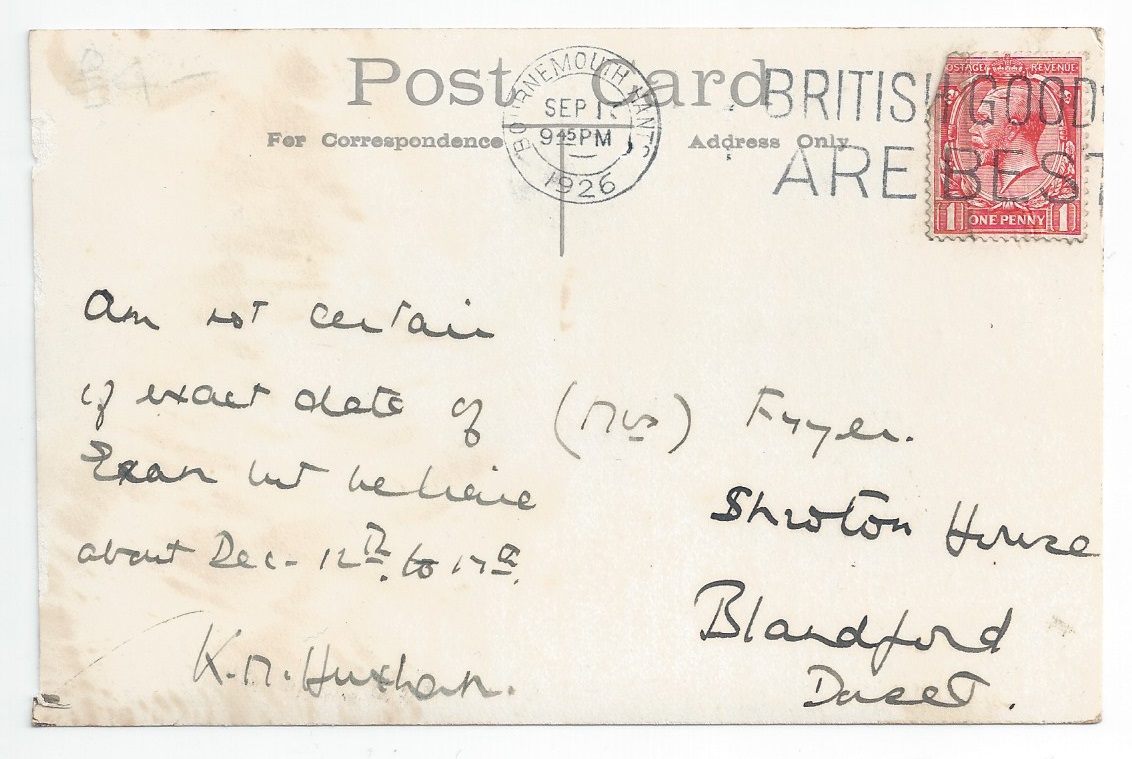 Post Card
For Correspondence
Address Only
BOURNEMOUTH HANTS
SEP 1
9 45 PM
1926
BRITISH GOODS
ARE BEST
POSTAGE REVENUE
1 ONE PENNY 1
Am not certain
if exact date of
Exam but believe
about Dec - 12th. to 17th.
K. M. Huxham.
(Mrs) Fryer.
Shroton House
Blandford
Dorset.